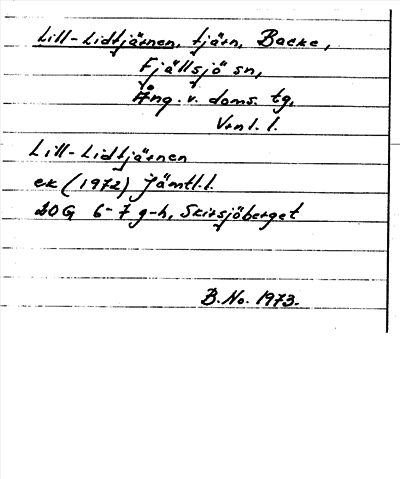 Lill-Lidtjärnen, tjärn, Backe,
Fjällsjö sn,
Ång. v. doms. tg,
Vrnl. l.
Lill-Lidtjärnen
ek (1972) Jämtl.l.
20G 6-7 g-h, Skirsjöberget
B.No. 1973.